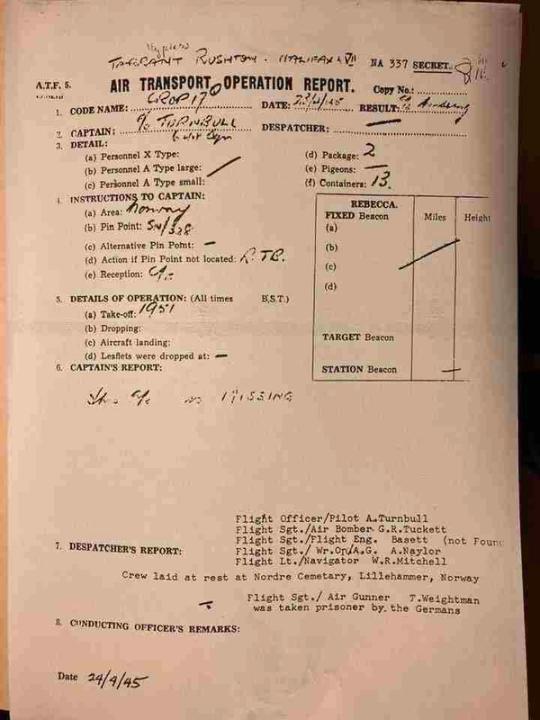 TARRANT RUSHTON. HALIFAX VII NA 337 SECRET.
A.T.F. 5. AIR TRANSPORT OPERATION REPORT. Copy No.:
1. CODE NAME: CROP 17 DATE: RESULT:
2. CAPTAIN: F/O TURNBULL DESPATCHER: —
3. DETAIL:
(a) Personnel X Type:
(b) Personnel A Type large:
(c) Personnel A Type small:
(d) Package: 2
(e) Pigeons: —
(f) Containers: 13.
4. INSTRUCTIONS TO CAPTAIN:
(a) Area: Norway
(b) Pin Point: SN/328
(c) Alternative Pin Point: —
(d) Action if Pin Point not located: R.T.B.
(e) Reception:
REBECCA.
FIXED Beacon Miles Height
(a)
(b)
(c)
(d)
TARGET Beacon
STATION Beacon —
5. DETAILS OF OPERATION: (All times B.S.T.)
(a) Take-off: 1951
(b) Dropping:
(c) Aircraft landing:
(d) Leaflets were dropped at: —
6. CAPTAIN'S REPORT:
This a/c is MISSING
Flight Officer/Pilot A.Turnbull
Flight Sgt./Air Bomber G.R.Tuckett
Flight Sgt./Flight Eng. Basett (not Found
7. DESPATCHER'S REPORT: Flight Sgt./ Wr.Op/A.G. A.Naylor
Flight Lt./Navigator W.R.Mitchell
Crew laid at rest at Nordre Cemetary, Lillehammer, Norway
Flight Sgt./ Air Gunner T.Weightman
was taken prisoner by the Germans
8. CONDUCTING OFFICER'S REMARKS:
Date 24/4/45